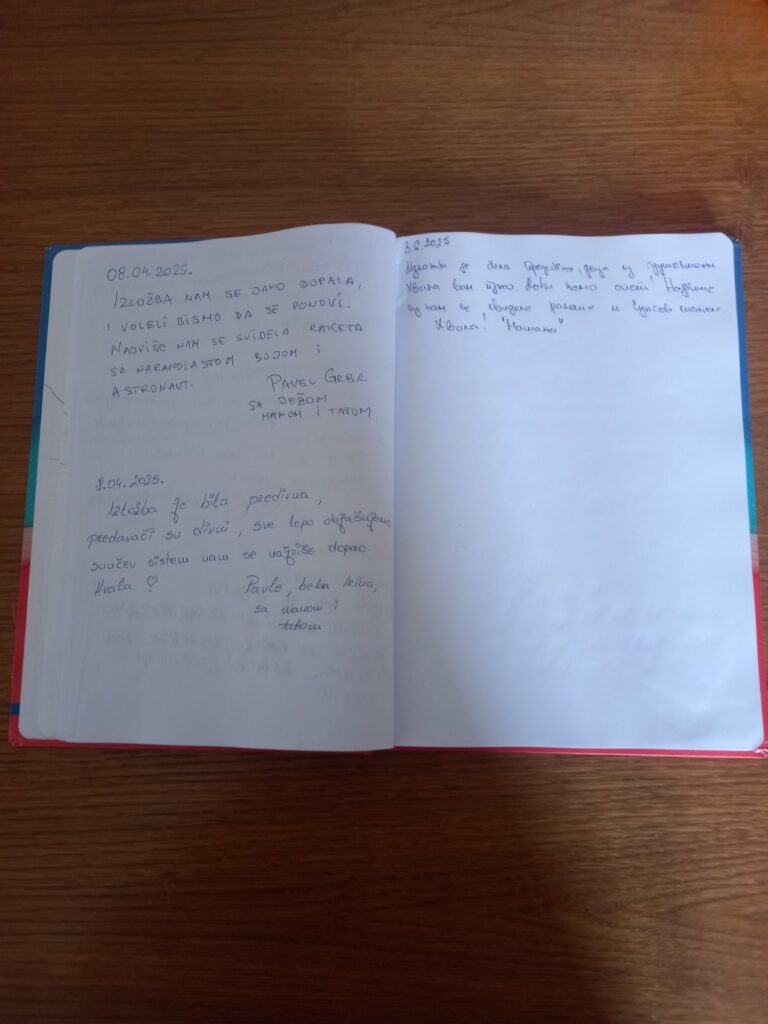 08.04.2025.
IZLOŽBA NAM SE JAKO DOPALA,
I VOLELI BISMO DA SE PONOVI.
NAJVIŠE NAM SE SVIDELA RAKETA
SA NARANDŽASTOM BOJOM I
ASTRONAUT.
PAVEL GRBR
SA JEŽOM
MAMOM I TATOM
8.04.2025.
Izložba je bila predivna,
predavači su divni, sve lepo objašnjeno,
sunčev sistem nam se najviše dopao.
Hvala ♡
Pavle, beba
sa mamom i
tatom
3.6.2025
Изложба је била предивна, деца су одушевљена
Хвала вам пуно опет! Највише
су нам се свиделе ракете и
Хвала!